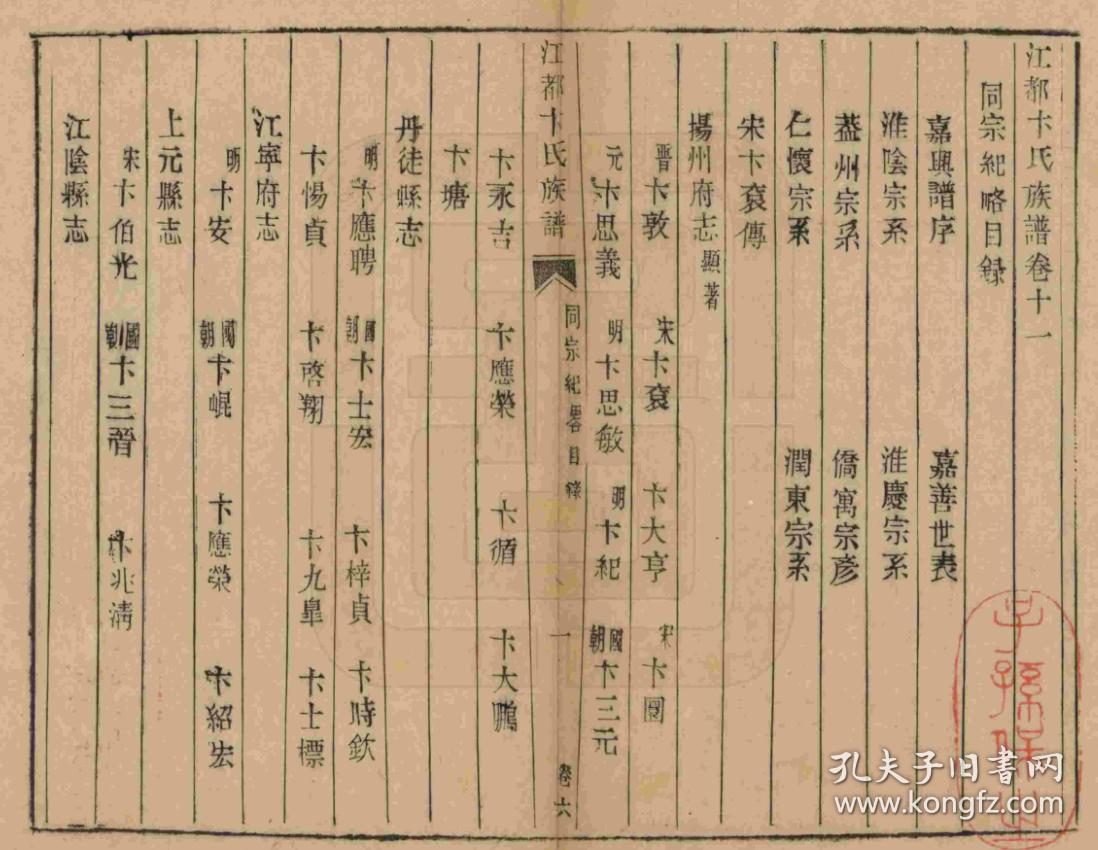 江都卞氏族譜卷十一
同宗紀略目録
嘉興譜序 嘉善世表
淮陰宗系 淮慶宗系
葢州宗系 僑寓宗彥
仁懷宗系 潤東宗系
宋卞袞傳
揚州府志顯著
晉卞敦 宋卞袞 卞大亨 宋卞圜
元卞思義 明卞思敏 明卞紀 國朝卞三元
江都卞氏族譜 同宗紀畧目錄 一 卷六
卞永吉 卞應榮 卞循 卞大鵬
卞塘
丹徒縣志
明卞應聘 國朝卞士宏 卞梓貞 卞時欽
卞惕貞 卞啓翔 卞九臯 卞士標
江寧府志
明卞安 國朝卞崐 卞應榮 卞紹宏
上元縣志
宋卞伯光 國朝卞三晉 卞兆淸
江陰縣志
孔夫子旧書网
www.kongfz.com